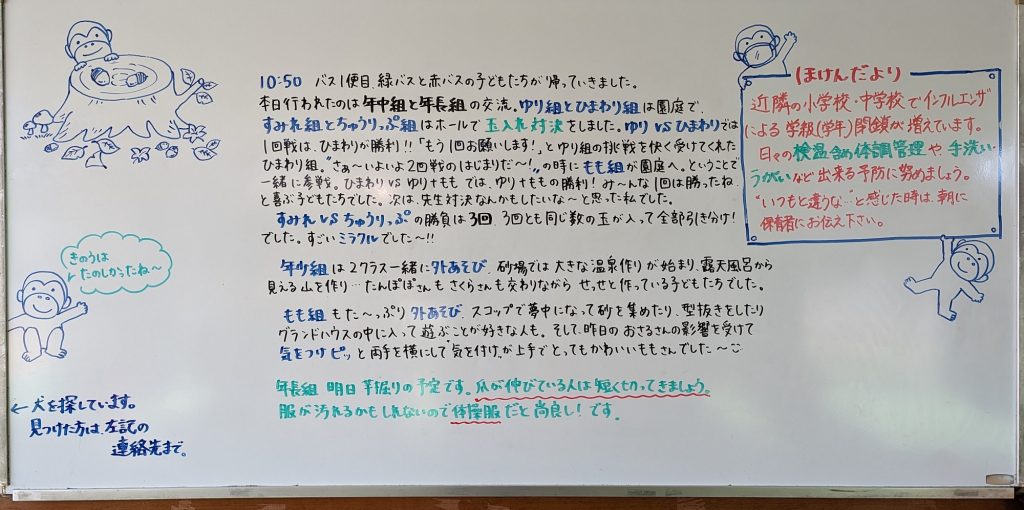 10:50 バス1便目、緑バスと赤バスの子どもたちが帰っていきました。
本日行われたのは年中組と年長組の交流。ゆり組とひまわり組は園庭で、
すみれ組とちゅうりっぷ組はホールで玉入れ対決をしました。ゆりVSひまわりでは
1回戦は、ひまわりが勝利!!「もう1回お願いします!」とゆり組の挑戦を快く受けてくれた
ひまわり組。"さぁ〜いよいよ2回戦のはじまりだ〜!"の時にもも組が園庭へ。ということで
一緒に参戦。ひまわりVSゆり+ももでは、ゆり+ももの勝利!み〜んな1回は勝ったね
と喜ぶ子どもたちでした。次は、先生対決なんかもしたいな〜と思った私でした。
すみれVSちゅうりっぷの勝負は3回、3回とも同じ数の玉が入って全部引き分け!
でした。すごいミラクルでした〜!!
年少組は2クラス一緒に外あそび、砂場では大きな温泉作りが始まり、露天風呂から
見える山を作り…たんぽぽさんもさくらさんも交わりながらせっせと作っている子どもたちでした。
もも組もた〜っぷり外あそび、スコップで夢中になって砂を集めたり、型抜きをしたり
グランドハウスの中に入って遊ぶことが好きな人も。そして、昨日のおさるさんの影響を受けて
気をつけピッと両手を横にして"気を付け"が上手でとってもかわいいももさんでした〜
年長組 明日芋掘りの予定です。爪が伸びている人は短く切ってきましょう。
服が汚れるかもしれないので体操服だと尚良し!です。
きのうは
たのしかったね〜
←犬を探しています。
見つけた方は、左記の
連絡先まで。
ほけんだより
近隣の小学校・中学校でインフルエンザ
による学級(学年)閉鎖が増えています。
日々の検温含め体調管理や、手洗い、
うがいなど出来る予防に努めましょう。
"いつもと違うな…"と感じた時は、朝に
保育者にお伝え下さい。